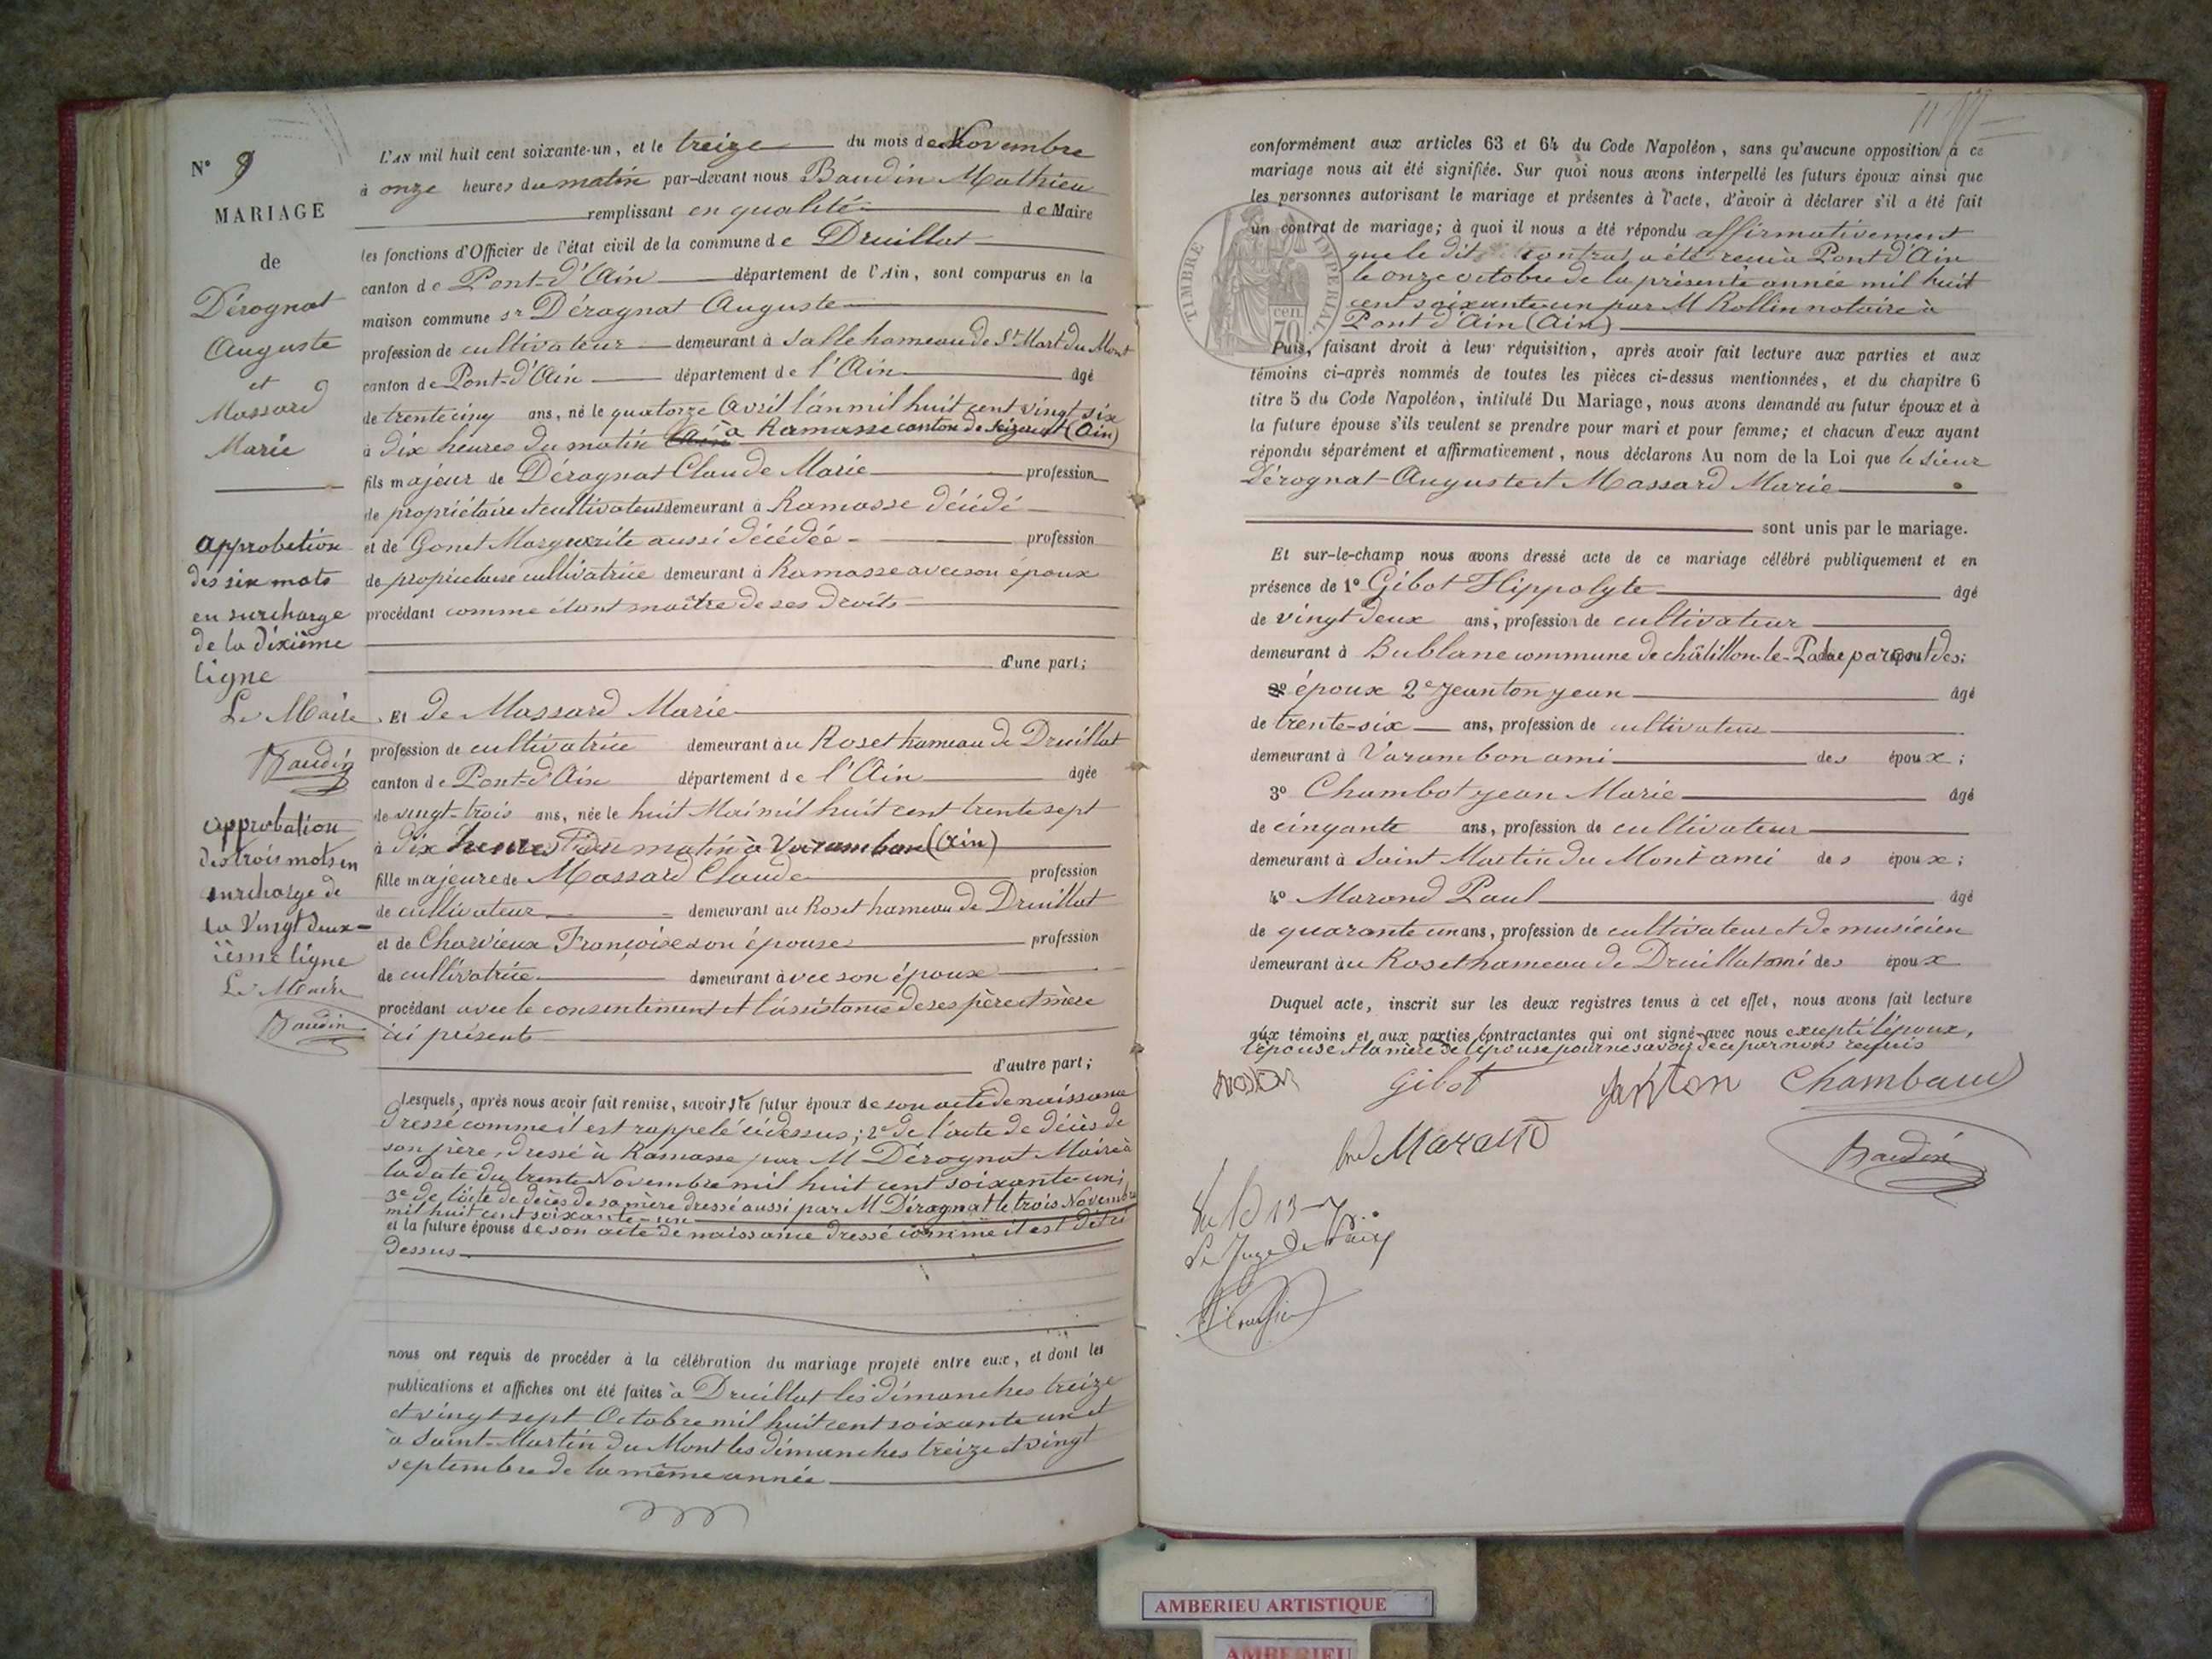 N° 9
MARIAGE
de
Dérognat
Auguste
et
Massard
Marie
approbation
des six mots
en surcharge
de la dixième
ligne
Le Maire
Baudin
approbation
des trois mots en
surcharge de
la Vingt deux-
ième ligne
Le Maire
Baudin
L'AN mil huit cent soixante-un, et le treize du mois de Novembre
à onze heures du matin par-devant nous Baudin Mathieu
remplissant en qualité de Maire
les fonctions d'Officier de l'état civil de la commune de Druillat
canton de Pont-d'Ain département de l'Ain, sont comparus en la
maison commune sr Dérognat Auguste
profession de cultivateur demeurant à Salle hameau de St Mart du Mont
canton de Pont-d'Ain département de l'Ain âgé
de trente cinq ans, né le quatorze Avril l'an mil huit cent vingt six
à dix heures du matin à Ramasse canton de Ceyzeriat (Ain)
fils majeur de Dérognat Claude Marie profession
de propriétaire et cultivateur demeurant à Ramasse décédé
et de Gonet Marguerite aussi décédée profession
de propriétaire cultivatrice demeurant à Ramasse avec son époux
procédant comme étant maître de ses droits
d'une part;
Et de Massard Marie
profession de cultivatrice demeurant au Roset hameau de Druillat
canton de Pont-d'Ain département de l'Ain âgée
de vingt-trois ans, née le huit Mai mil huit cent trente sept
à dix heures du matin à Varambon (Ain)
fille majeure de Massard Claude profession
de cultivateur demeurant au Roset hameau de Druillat
et de Charvieux Françoise son épouse profession
de cultivatrice demeurant avec son époux
procédant avec le consentement et l'assistance de ses père et mère
ici présents
d'autre part;
Lesquels, après nous avoir fait remise, savoir, le futur époux de son acte de naissance
dressé comme il est rappelé ci dessus; 2e de l'acte de décès de
son père, dressé à Ramasse par M Dérognat Maire à
la date du trente Novembre mil huit cent soixante-un;
3e de l'acte de décès de sa mère dressé aussi par M Dérognat le trois Novembre
mil huit cent soixante-un
et la future épouse de son acte de naissance dressé comme il est dit ci
dessus
nous ont requis de procéder à la célébration du mariage projeté entre eux, et dont les
publications et affiches ont été faites à Druillat les dimanches treize
et vingt sept Octobre mil huit cent soixante un et
à Saint-Martin du Mont les dimanches treize et vingt
septembre de la même année
conformément aux articles 63 et 64 du Code Napoléon, sans qu'aucune opposition à ce
mariage nous ait été signifiée. Sur quoi nous avons interpellé les futurs époux ainsi que
les personnes autorisant le mariage et présentes à l'acte, d'avoir à déclarer s'il a été fait
un contrat de mariage; à quoi il nous a été répondu affirmativement
que le dit contrat a été reçu à Pont d'Ain
le onze octobre de la présente année mil huit
cent soixante un par M Rollin notaire à
Pont d'Ain (Ain)
TIMBRE IMPÉRIAL
cen. 70
Puis, faisant droit à leur réquisition, après avoir fait lecture aux parties et aux
témoins ci-après nommés de toutes les pièces ci-dessus mentionnées, et du chapitre 6
titre 5 du Code Napoléon, intitulé Du Mariage, nous avons demandé au futur époux et à
la future épouse s'ils veulent se prendre pour mari et pour femme; et chacun d'eux ayant
répondu séparément et affirmativement, nous déclarons Au nom de la Loi que le sieur
Dérognat Auguste et Massard Marie
sont unis par le mariage.
Et sur-le-champ nous avons dressé acte de ce mariage célébré publiquement et en
présence de 1° Gibot Hippolyte âgé
de vingt deux ans, profession de cultivateur
demeurant à Bublane commune de châtillon-le-Palue parent des
époux 2e Jeanton jean âgé
de trente-six ans, profession de cultivateur
demeurant à Varambon ami des époux;
3° Chambot jean Marie âgé
de cinqante ans, profession de cultivateur
demeurant à Saint Martin du Mont ami des époux;
4° Marond Paul âgé
de quarante un ans, profession de cultivateur et de musicien
demeurant au Roset hameau de Druillat ami des époux
Duquel acte, inscrit sur les deux registres tenus à cet effet, nous avons fait lecture
aux témoins et aux parties contractantes qui ont signé avec nous excepté l'époux,
l'épouse et la mère de l'épouse pour ne savoir de ce par nous requis
Gibot
Chambaud
Baudin
Le Juge de Paix
AMBERIEU ARTISTIQUE
AMBERIEU